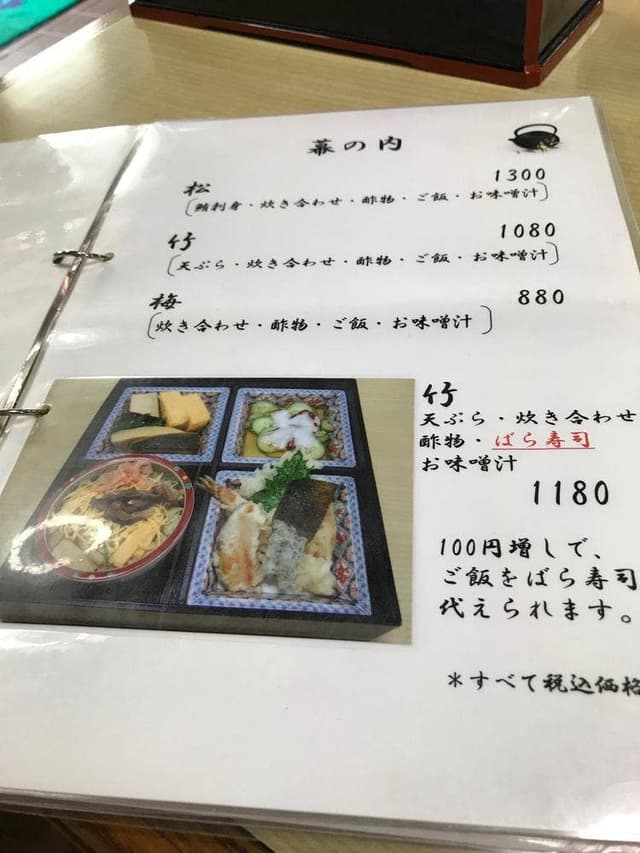 幕の内
松 1300
(鮪刺身・炊き合わせ・酢物・ご飯・お味噌汁)
竹 1080
(天ぷら・炊き合わせ・酢物・ご飯・お味噌汁)
梅 880
(炊き合わせ・酢物・ご飯・お味噌汁)
竹
天ぷら・炊き合わせ
酢物・ばら寿司
お味噌汁
1180
100円増しで、
ご飯をばら寿司
代えられます。
*すべて税込価格